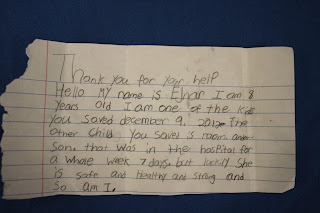 Thank you for your help
Hello my name is I am 8
years old I am one of the kids
you saved december 9, 2012. The
other child you saved is
son. that was in the hospital for
a whole week 7 days. but luckily she
is safe and healthy and strong and
so am I.